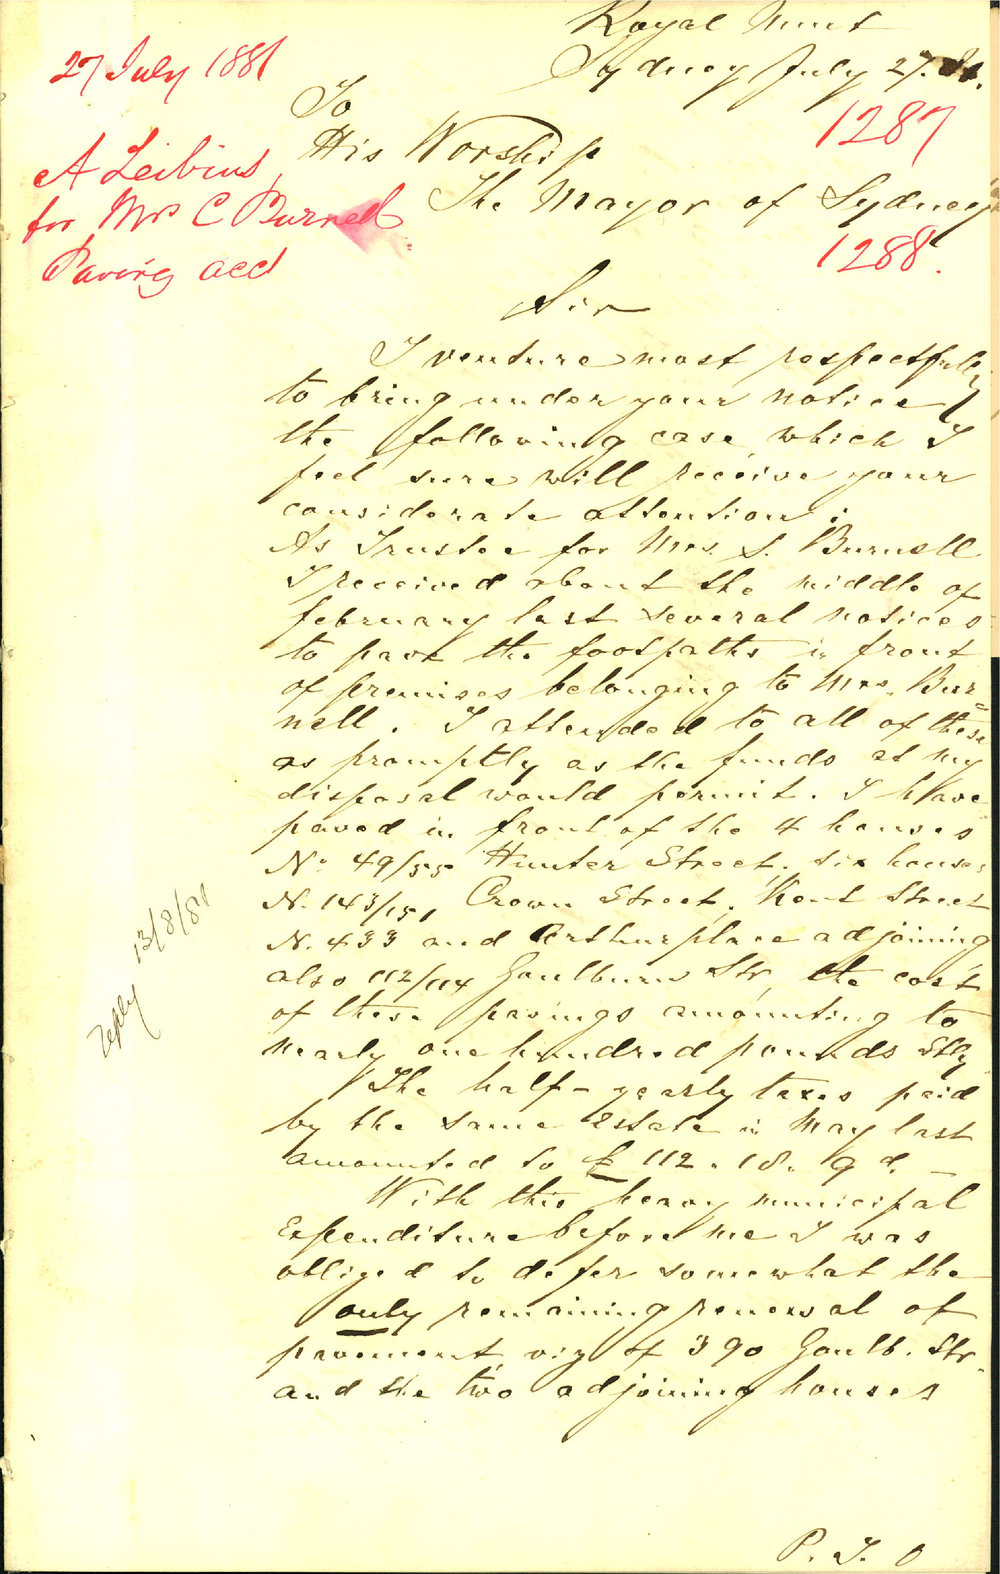 Royal Mint
Sydney July 27. 81.
27 July 1881
1287
To
His Worship
A Leibius
for Mrs C Burnell
Paving acct
The Mayor of Sydney
1288.
Sir
I venture most respectfully
to bring under your notice
the following case, which I
feel sure will receive your
considerate attention:
As Trustee for Mrs. S. Burnell
I received about the middle of
february last several notices
to pave the footpaths in front
of premises belonging to Mrs. Bur=
nell. I attended to all of these
as promptly as the funds at my
disposal would permit. I have
paved in front of the 4 houses
No. 49/55 Hunter Street, six houses
N. 143/151, Crown Street, Kent Street
N. 433 and Arthurplace adjoining
also 112/114 Goulburn Str, the cost
of these pavings amounting to
nearly one hundred pounds Stlg
The half-yearly taxes paid
by the same Estate in May last
amounted to £ 112. 18. 9 d. —
With this heavy municipal
Expenditure before me I was
obliged to defer somewhat the
only remaining renewal of
pavement, viz of 390 Goulb. Str.
and the two adjoining houses
P. T. O
Reply 13/8/81